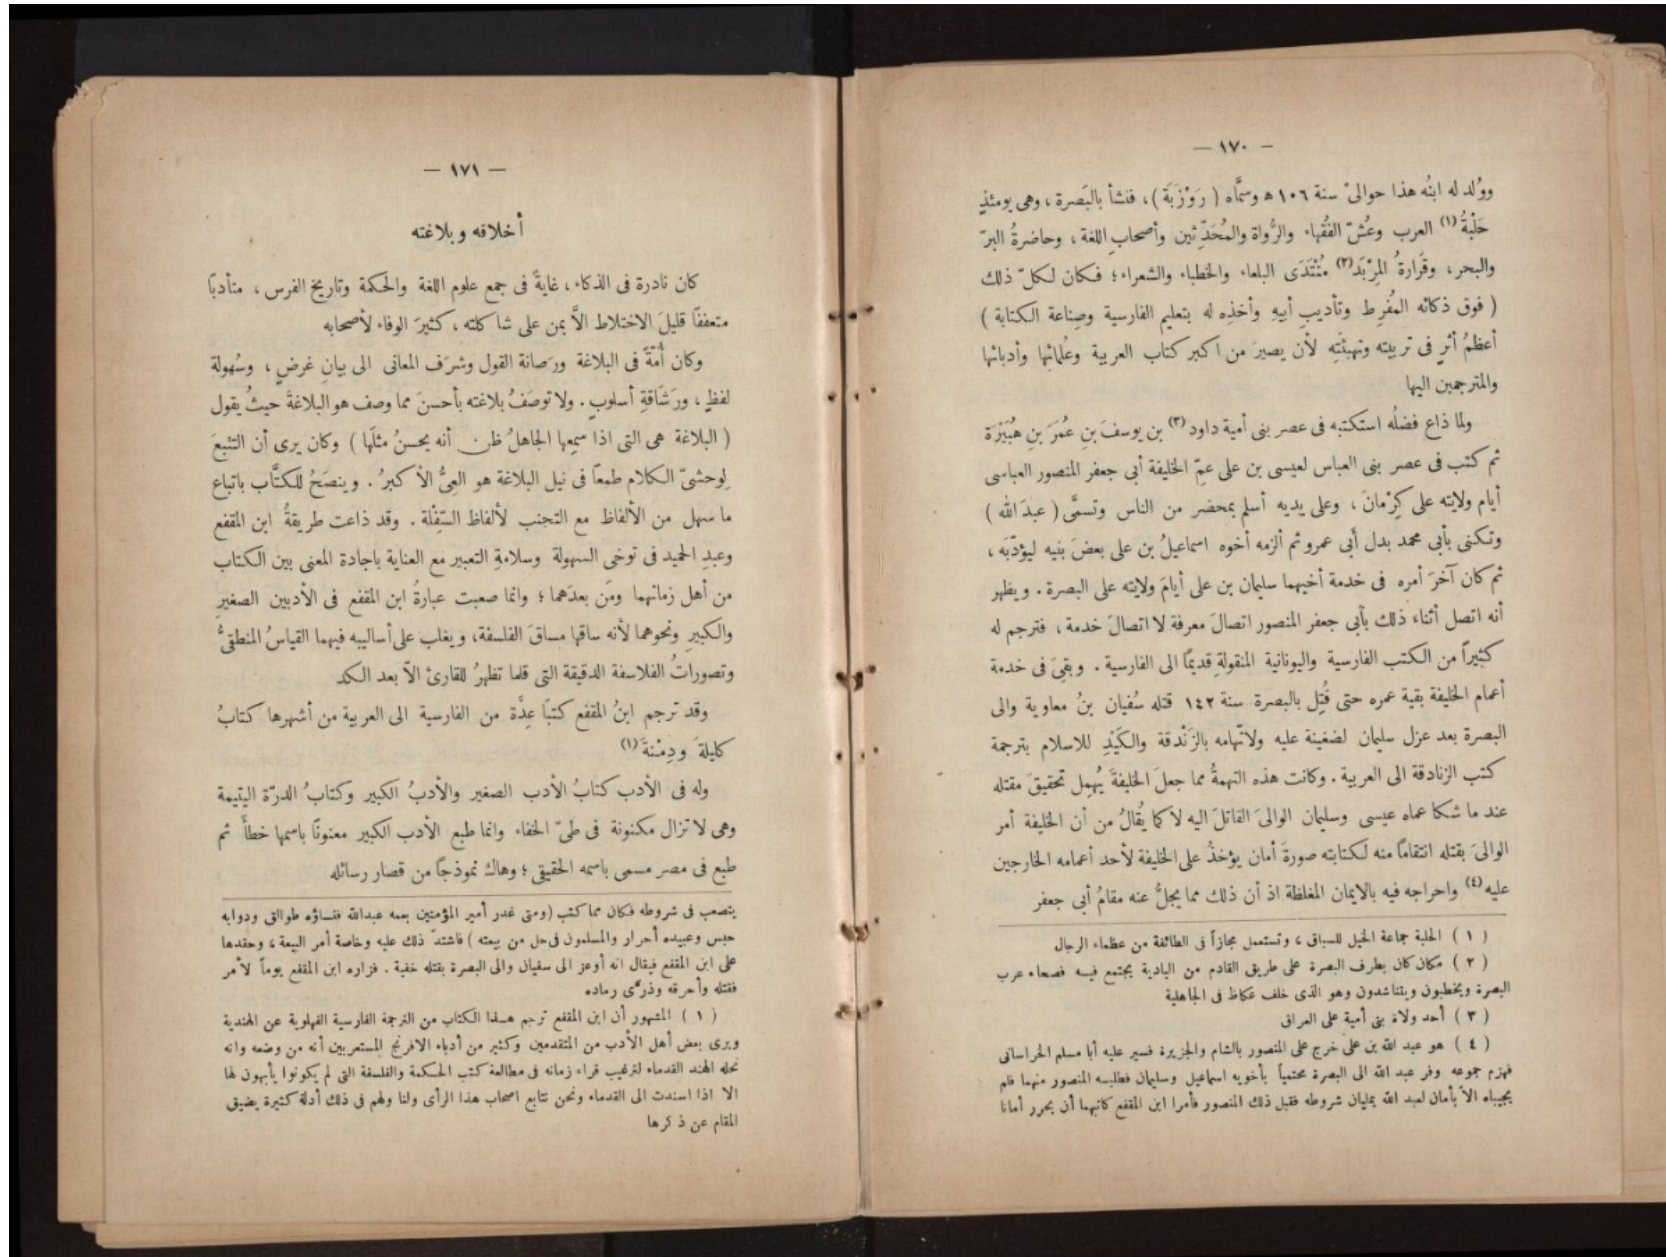 — ١٧٠ —
ووُلد له ابنُه هذا حوالىْ سنة ١٠٦ ﻫ وسمَّاه ( رَوْزَبَة ) ، فنشأ بالبَصرة ، وهى يومئذٍ
حَلْبةُ (١) العرب وعُشّ الفُقَهاء والرُّواة والمُحَدِّثين وأصحابِ اللغة ، وحاضرةُ البرّ
والبحر ، وقَرارةُ المِرْبَد (٢) مُنْتَدَى البلغاء والخطباء والشعراء ؛ فكان لكلّ ذلك
( فوق ذكائه المُفرِط وتأديبِ أبيهِ وأخذِه له بتعليم الفارسية وصِناعة الكتابة )
أعظمُ أثرٍ فى تربيته وتهيئتِه لأن يصيرَ من اكبر كتاب العربية وعُلمائِها وأدبائها
والمترجمين اليها
ولما ذاع فضلُه استكتبه فى عصر بنى أمية داود (٣) بن يوسفَ بنِ عُمَرَ بنِ هُبَيْرَة
ثم كتب فى عصر بنى العباس لعيسى بن على عمّ الخليفة أبى جعفر المنصور العباسى
أيام ولايته على كِرْمانَ ، وعلى يديه أسلم بمحضر من الناس وتسمَّى ( عبدَ الله )
وتكنى بأبى محمد بدل أبى عمرو ثم ألزمه أخوه اسماعيلُ بن على بعضَ بنيه ليؤدّبَه ،
ثم كان آخرَ أمره فى خدمة أخيهما سليمان بن على أيامَ ولايته على البصرة . ويظهر
أنه اتصل أثناء ذلك بأبى جعفر المنصور اتصالَ معرفة لا اتصالَ خدمة ، فترجم له
كثيراً من الكتب الفارسية واليونانية المنقولةِ قديمًا الى الفارسية . وبقىَ فى خدمة
أعمام الخليفة بقية عمره حتى قُتِل بالبصرة سنة ١٤٢ قتله سُفيان بنُ معاوية والى
البصرة بعد عزل سليمان لضغينة عليه ولاتّهامه بالزَنْدقة والكَيْدِ للاسلام بترجمة
كتب الزنادقة الى العربية . وكانت هذه التهمةُ مما جعلَ الخليفةَ يُهمِل تحقيقَ مقتله
عند ما شكا عماه عيسى وسليمان الوالىَ القاتلَ اليه لا كما يُقالُ من أن الخليفة أمر
الوالىَ بقتله انتقامًا منه لكتابته صورةَ أمان يؤخذُ على الخليفة لأحد أعمامه الخارجين
عليه (٤) واحراجه فيه بالايمان المغلظة اذ أن ذلك مما يجلُّ عنه مقامُ أبى جعفر
( ١ ) الحلبة جماعة الخيل للسباق ، وتستعمل مجازاً فى الطائفة من عظماء الرجال
( ٢ ) مكان كان بطرف البصرة على طريق القادم من البادية يجتمع فيه فصحاء عرب
البصرة ويخطبون ويتناشدون وهو الذى خلف عكاظ فى الجاهلية
( ٣ ) أحد ولاة بنى أمية على العراق
( ٤ ) هو عبد الله بن على خرج على المنصور بالشام والجزيرة فسير عليه أبا مسلم الخراسانى
فهزم جموعه وفر عبد الله الى البصرة محتمياً بأخويه اسماعيل وسليمان فطلبه المنصور منهما فلم
يجيباه الاّ بأمان لعبد الله يمليان شروطه فقبل ذلك المنصور فأمرا ابن المقفع كاتبهما أن يحرر أمانا
— ١٧١ —
أخلاقه وبلاغته
كان نادرة فى الذكاء ، غايةً فى جمع علوم اللغة والحكمة وتاريخ الفرس ، متأدبًا
متعففًا قليلَ الاختلاط الاَّ بمن على شاكلته ، كثيرَ الوفاء لأصحابه
وكان أُمّةً فى البلاغة ورَصانة القول وشرَف المعانى الى بيانِ غرضٍ ، وسُهولة
لفظٍ ، ورَشَاقةِ أسلوبٍ . ولا توصَفُ بلاغته بأحسنَ مما وصف هو البلاغةَ حيثُ يقول
( البلاغة هى التى اذا سمِعها الجاهلُ ظن أنه يحسنُ مثلَها ) وكان يرى أن التتبعَ
لِوحشىّ الكلام طمعًا فى نيل البلاغة هو العِىُّ الأكبرُ . وينصَحُ للكتَّاب باتباع
ما سهل من الألفاظ مع التجنب لألفاظ السِّفْلة . وقد ذاعت طريقةُ ابن المقفع
وعبدِ الحميد فى توخى السهولة وسلامةِ التعبير مع العناية باجادة المعنى بين الكتاب
من أهل زمانهما ومَن بعدَهما ؛ وانما صعبت عبارةُ ابن المقفع فى الأدبين الصغيرِ
والكبيرِ ونحوهما لأنه ساقها مساقَ الفلسفة ، ويغلب على أساليبه فيهما القياسُ المنطقىُّ
وتصوراتُ الفلاسفة الدقيقة التى قلما تظهرُ للقارئ الاّ بعد الكد
وقد ترجم ابنُ المقفع كتبًا عِدَّة من الفارسية الى العربية من أشهرها كتابُ
كليلةَ ودِمْنةَ (١)
وله فى الأدب كتابُ الأدب الصغير والأدبُ الكبير وكتابُ الدرّة اليتيمة
وهى لا تزال مكنونة فى طىّ الخفاء وانما طبع الأدب الكبير معنونًا باسمها خطأً ثم
طبع فى مصر مسمى باسمه الحقيقى ؛ وهاك نموذجًا من قصار رسائله
يتصعب فى شروطه فكان مما كتب ( ومتى غدر أمير المؤمنين بعمه عبدالله فنساؤه طوالق ودوابه
حبس وعبيده أحرار والمسلمون فى حل من بيعته ) فاشتدّ ذلك عليه وخاصة أمر البيعة ، وحقدها
على ابن المقفع فيقال انه أوعز الى سفيان والى البصرة بقتله خفية . فزاره ابن المقفع يوماً لأمر
فقتله وأحرقه وذرَّى رماده
( ١ ) المشهور أن ابن المقفع ترجم هذا الكتاب من الترجمة الفارسية الفهلوية عن الهندية
ويرى بعض أهل الأدب من المتقدمين وكثير من أدباء الافرنج المستعربين أنه من وضعه وانه
نحله الهند القدماء لترغيب قراء زمانه فى مطالعة كتب الحكمة والفلسفة التى لم يكونوا يأبهون لها
الا اذا اسندت الى القدماء ونحن نتابع اصحاب هذا الرأى ولنا ولهم فى ذلك أدلة كثيرة يضيق
المقام عن ذكرها